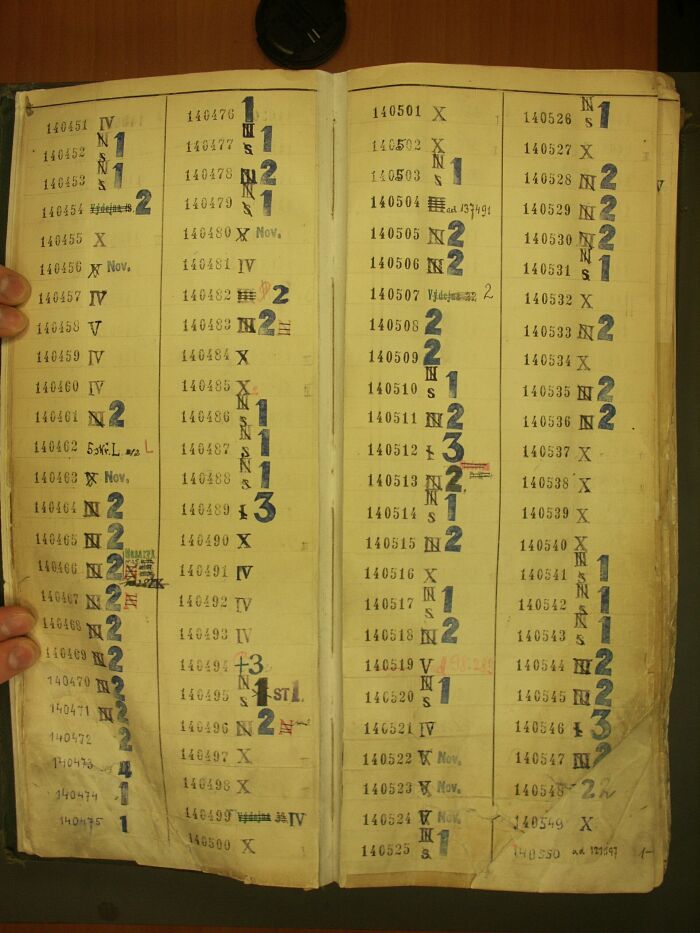 140451 IV
140452 N s 1
140453 N s 1
140454 Výdejna 2
140455 X
140456 X Nov.
140457 IV
140458 V
140459 IV
140460 IV
140461 III 2
140462 L
140463 X Nov.
140464 III 2
140465 III 2
140466 III 2
140467 III 2 III
140468 III 2
140469 III 2
140470 III 2
140471 III 2
140472 2
140473 4
140474 1
140475 1
140476 1
140477 N s 1
140478 III 2
140479 N s 1
140480 X Nov.
140481 IV
140482 2
140483 III 2 III
140484 X
140485 X
140486 N s 1
140487 N s 1
140488 N s 1
140489 1 3
140490 X
140491 IV
140492 IV
140493 IV
140494 +3
140495 N s 1 ST 1.
140496 N 2
140497 X
140498 X
140499 Výdejna IV
140500 X
140501 X
140502 X
140503 N s 1
140504 ad 137491
140505 III 2
140506 III 2
140507 Výdejna 2
140508 2
140509 2
140510 N s 1
140511 III 2
140512 1 3
140513 III 2
140514 N s 1
140515 III 2
140516 X
140517 N s 1
140518 III 2
140519 V
140520 N s 1
140521 IV
140522 V Nov.
140523 V Nov.
140524 V Nov.
140525 N s. 1
140526 N s 1
140527 X
140528 III 2
140529 III 2
140530 III 2
140531 N s 1
140532 X
140533 III 2
140534 X
140535 III 2
140536 III 2
140537 X
140538 X
140539 X
140540 X
140541 N s 1
140542 N s 1
140543 N s 1
140544 III 2
140545 III 2
140546 1 3
140547 III 2
140548 2 2
140549 X
140550 ad